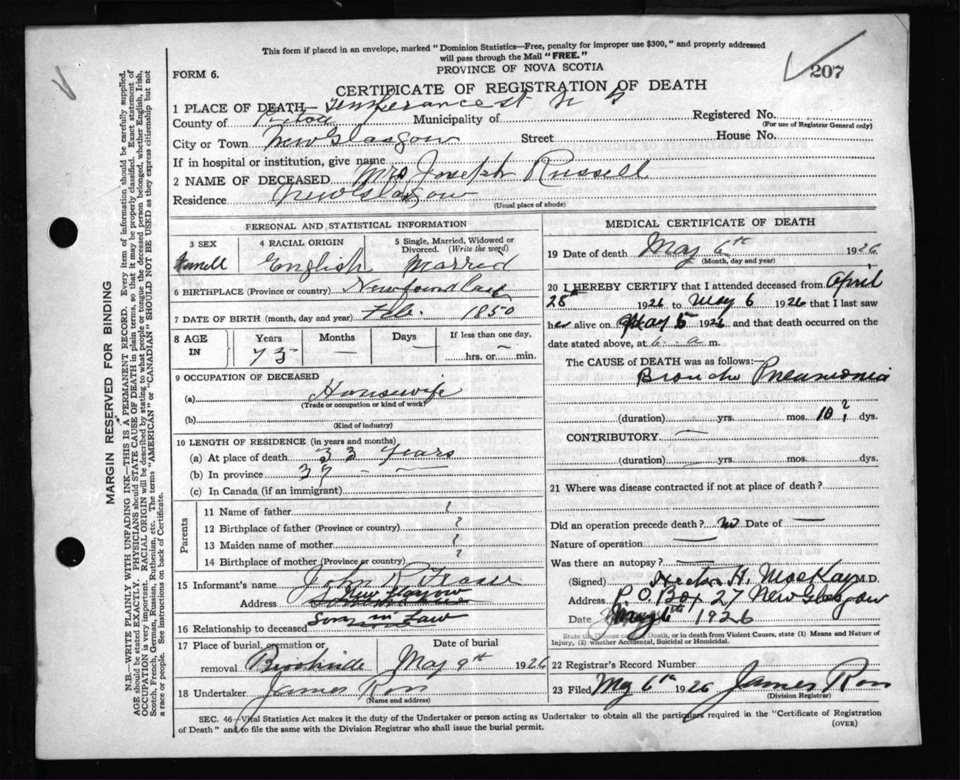 This form if placed in an envelope, marked "Dominion Statistics—Free, penalty for improper use $300," and properly addressed
will pass through the Mail "FREE."
207
FORM 6.
PROVINCE OF NOVA SCOTIA
CERTIFICATE OF REGISTRATION OF DEATH
1 PLACE OF DEATH— Temperance st N G
Registered No.
(For use of Registrar General only)
County of Pictou Municipality of
City or Town New Glasgow Street House No.
If in hospital or institution, give name
2 NAME OF DECEASED Mrs Joseph Russell
Residence New Glasgow
(Usual place of abode)
PERSONAL AND STATISTICAL INFORMATION
3 SEX
4 RACIAL ORIGIN
5 Single, Married, Widowed or Divorced. (Write the word)
English Married
6 BIRTHPLACE (Province or country) Newfoundland
7 DATE OF BIRTH (month, day and year) Feb. 1850
8 AGE IN
Years Months Days If less than one day,
75 — — hrs. or min.
9 OCCUPATION OF DECEASED
(a) Housewife
(Trade or occupation or kind of work)
(b)
(Kind of industry)
10 LENGTH OF RESIDENCE (in years and months)
(a) At place of death 33 years
(b) In province 37 — —
(c) In Canada (if an immigrant)
Parents
11 Name of father ?
12 Birthplace of father (Province or country) ?
13 Maiden name of mother ?
14 Birthplace of mother (Province or country) ?
15 Informant's name John R Fraser
Address New Glasgow
16 Relationship to deceased Son in Law
17 Place of burial, cremation or removal Brookside
Date of burial May 9th 1926
18 Undertaker James Ross
(Name and address)
MEDICAL CERTIFICATE OF DEATH
19 Date of death May 6th 1926
(Month, day and year)
20 I HEREBY CERTIFY that I attended deceased from April
25th 1926 to May 6 1926 that I last saw
her alive on May 5 1926 and that death occurred on the
date stated above, at 6 a m.
The CAUSE of DEATH was as follows:
Broncho Pneumonia
(duration) yrs. mos. 10 ? dys.
CONTRIBUTORY —
(duration) yrs. mos. dys.
21 Where was disease contracted if not at place of death?
Did an operation precede death? no Date of —
Nature of operation —
Was there an autopsy? —
(Signed) Hector H. MacKay M.D.
Address P.O. Box 27 New Glasgow
Date May 6th 1926
State the Disease causing Death, or in death from Violent Causes, state (1) Means and Nature of
Injury, (2) whether Accidental, Suicidal or Homicidal.
22 Registrar's Record Number
23 Filed May 6th 1926 James Ross
(Division Registrar)
SEC. 46—Vital Statistics Act makes it the duty of the Undertaker or person acting as Undertaker to obtain all the particulars required in the "Certificate of Registration
of Death" and to file the same with the Division Registrar who shall issue the burial permit.
(OVER)
MARGIN RESERVED FOR BINDING
N.B.—WRITE PLAINLY WITH UNFADING INK—THIS IS A PERMANENT RECORD. Every item of information should be carefully supplied.
AGE should be stated EXACTLY. PHYSICIANS should STATE CAUSE OF DEATH in plain terms, so that it may be properly classified. Exact statement of
OCCUPATION is very important. RACIAL ORIGIN will be described by stating to what people or tongue the deceased person belonged, whether English, Irish,
Scotch, French, German, Russian, Ruthenian, etc. The terms "AMERICAN" or "CANADIAN" SHOULD NOT BE USED as they express citizenship but not
a race or people. See instructions on back of Certificate.